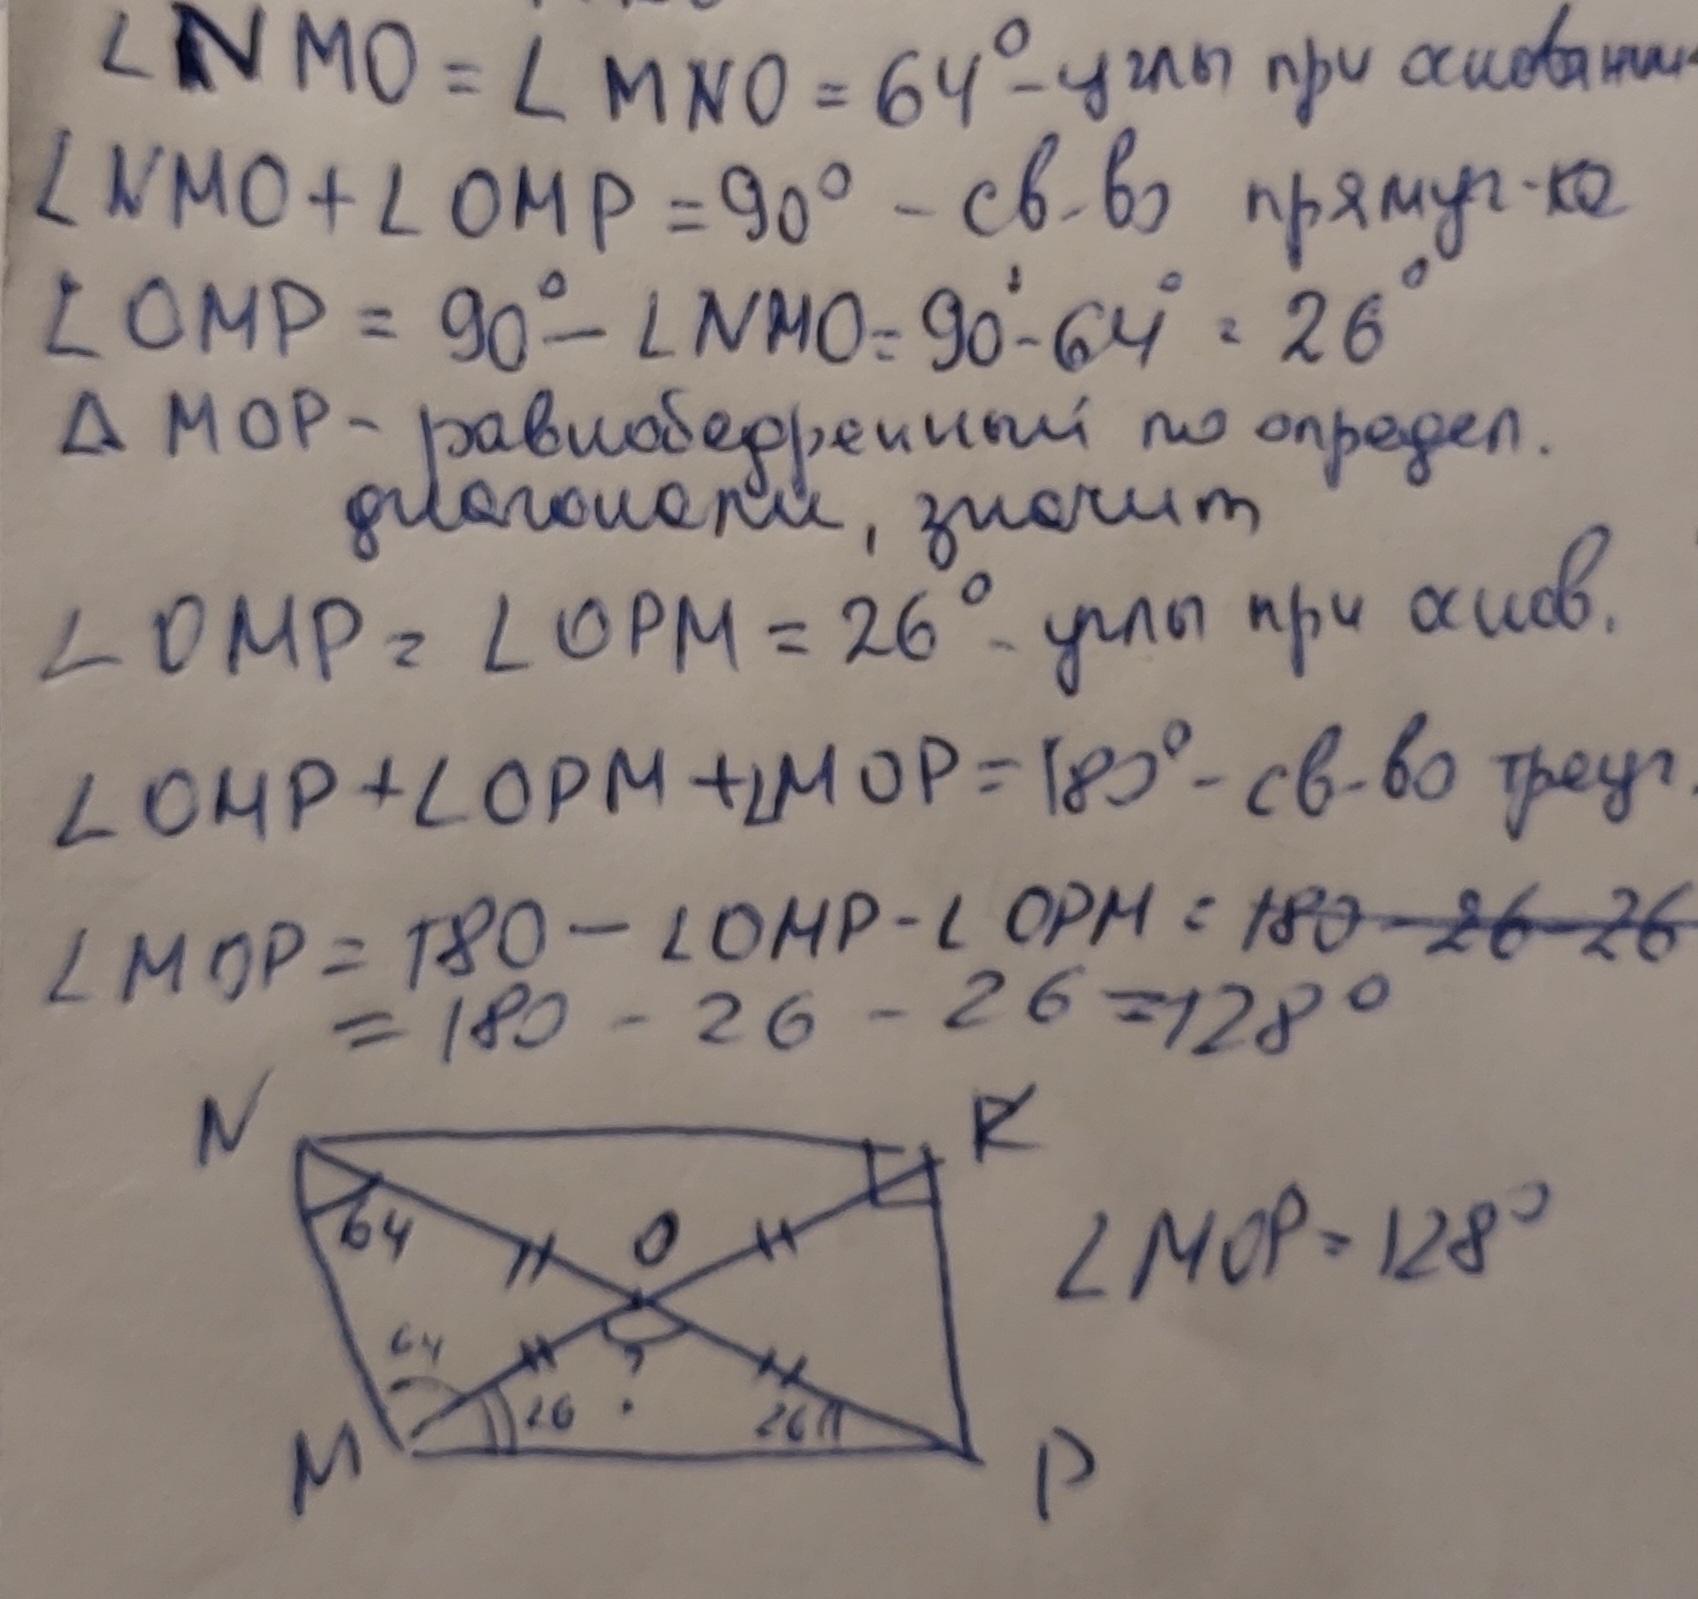 ∠NMO = ∠MNO = 64° - углы при основании
∠NMO + ∠OMP = 90° - св-во прямуг-ка
∠OMP = 90° - ∠NMO = 90° - 64° = 26°
Δ MOP - равнобедренный по определ.
диагонали, значит
∠OMP = ∠OPM = 26° - углы при основ.
∠OMP + ∠OPM + ∠MOP = 180° - св-во треуг.
∠MOP = 180 - ∠OMP - ∠OPM = 180 - 26 - 26
= 180 - 26 - 26 = 128°
N K
64 O
∠MOP = 128°
64 ?
26 26
M P